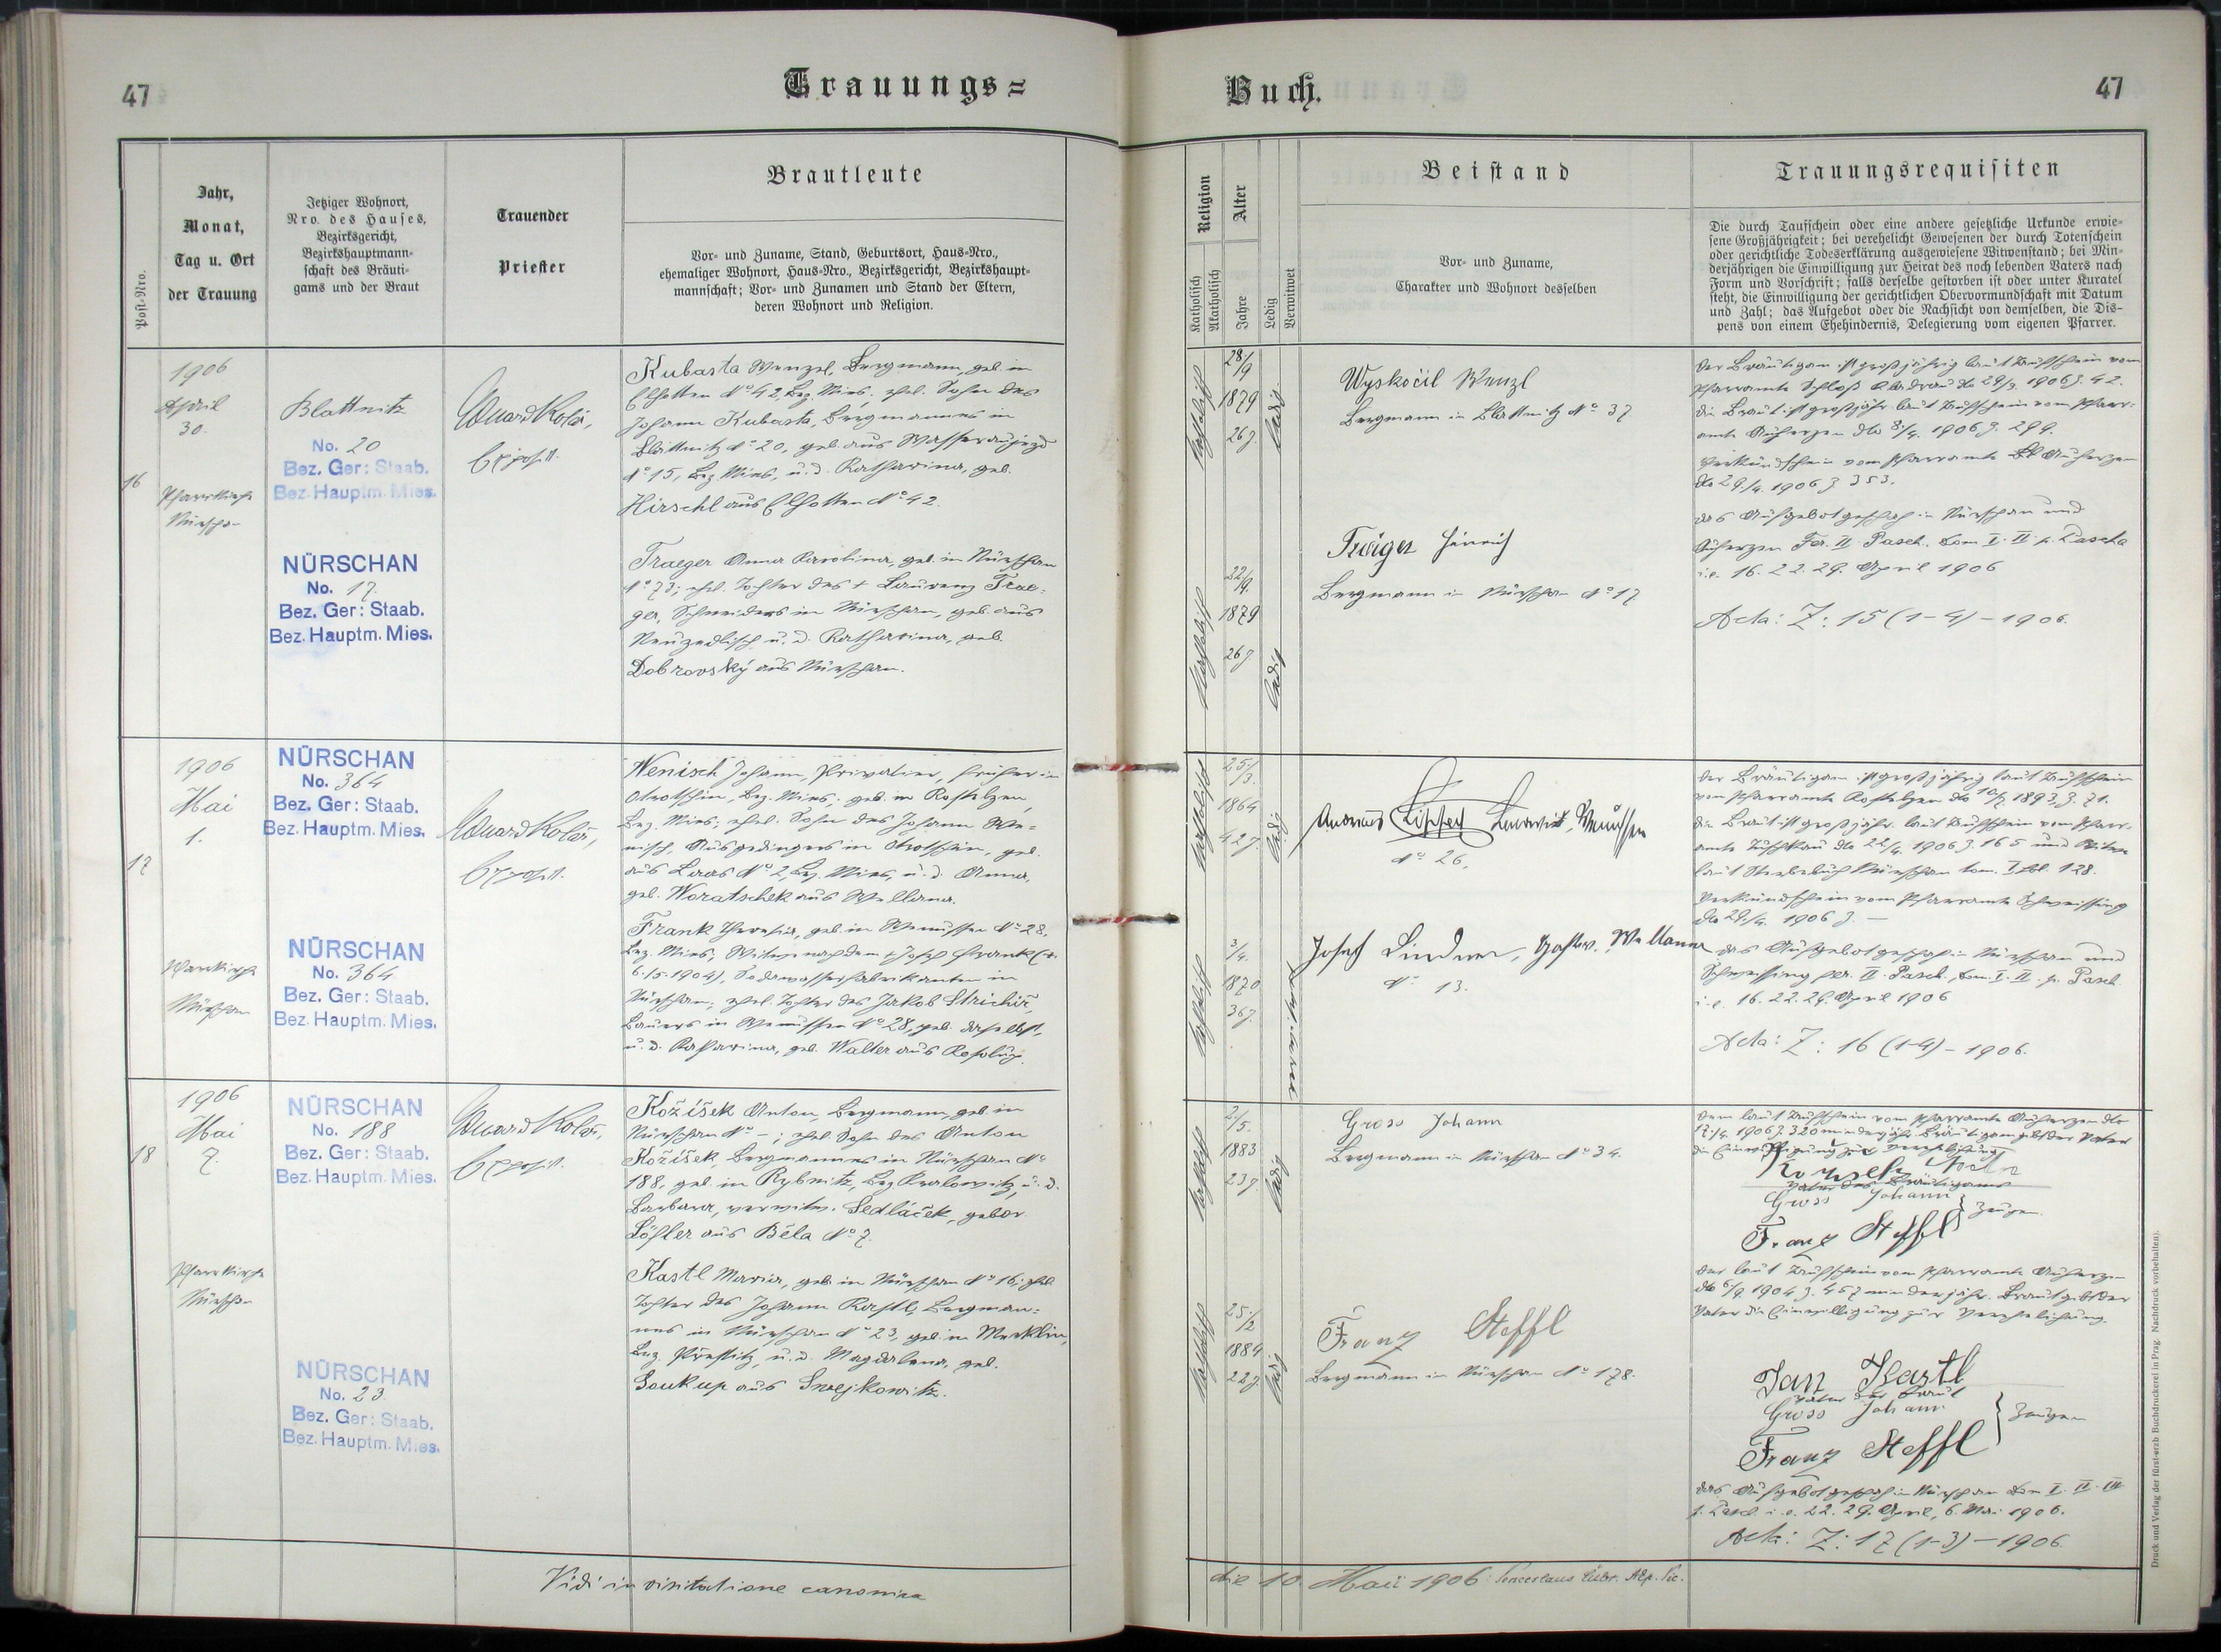 47
Trauungs=
Buch.
47
Post-Nro.
Jahr,
Monat,
Tag u. Ort
der Trauung
Jetziger Wohnort,
Nro. des Hauses,
Bezirksgericht,
Bezirkshauptmann-
schaft des Bräuti-
gams und der Braut
Trauender
Priester
Brautleute
Vor- und Zuname, Stand, Geburtsort, Haus-Nro.,
ehemaliger Wohnort, Haus-Nro., Bezirksgericht, Bezirkshaupt-
mannschaft; Vor- und Zunamen und Stand der Eltern,
deren Wohnort und Religion.
Religion
Katholisch
Akatholisch
Alter
Jahre
Ledig
Verwitwet
Beistand
Vor- und Zuname,
Charakter und Wohnort desselben
Trauungsrequisiten
Die durch Taufschein oder eine andere gesetzliche Urkunde erwie-
sene Großjährigkeit; bei verehelicht Gewesenen der durch Totenschein
oder gerichtliche Todeserklärung ausgewiesene Witwenstand; bei Min-
derjährigen die Einwilligung zur Heirat des noch lebenden Vaters nach
Form und Vorschrift; falls derselbe gestorben ist oder unter Kuratel
steht, die Einwilligung der gerichtlichen Obervormundschaft mit Datum
und Zahl; das Aufgebot oder die Nachsicht von demselben, die Dis-
pens von einem Ehehindernis, Delegierung vom eigenen Pfarrer.
16
1906
April
30.
Pfarrkirche
Nürschan
Blattnitz
No. 20
Bez. Ger: Staab.
Bez. Hauptm. Mies.
NÜRSCHAN
No. 17.
Bez. Ger: Staab.
Bez. Hauptm. Mies.
Eduard Kolář,
Exposit.
Kubasta Wenzel, Bergmann, geb. in
Elhotten No 42, Bez. Mies, ehel. Sohn des
Johann Kubasta, Bergmannes in
Blattnitz No 20, geb. aus Wasseraujezd
No 15, Bez. Mies, u. d. Katharina, geb.
Hirschl aus Elhotten No 42.
Traeger Anna Karolina, geb. in Nürschan
No 73; ehel. Tochter des + Laurenz Trae-
ger, Schneiders in Nürschan, geb. aus
Neuzedlisch u. d. Katharina, geb.
Dobrovský aus Nürschan.
katholisch
28/9
1879
26 J.
ledig
Wyskočil Wenzl
Bergmann in Blattnitz No 37
katholisch
22/9.
1879
26 J.
ledig
Träger Heinrich
Bergmann in Nürschan No 17
Der Bräutigam ist großjährig laut Taufschein vom
Pfarramte Schloß Kladrau dto 29/3. 1906 Z. 42.
Die Braut ist großjähr. laut Taufschein vom Pfarr-
amte Auherzen dto 8/4. 1906 Z. 299.
Verkündschein vom Pfarramte Auherzen
dto 29./4. 1906 Z 353.
Das Aufgebot geschah in Nürschan und
Auherzen Fer. II Pasch. Dom I. II p. Pascha
i.e. 16. 22. 29. April 1906
Acta: Z: 15 (1-4) - 1906.
17
1906
Mai
1.
Pfarrkirche
Nürschan
NÜRSCHAN
No. 364
Bez. Ger: Staab.
Bez. Hauptm. Mies.
NÜRSCHAN
No. 364
Bez. Ger: Staab.
Bez. Hauptm. Mies.
Eduard Kolář,
Exposit.
Wenisch Johann, Privatier, früher in
Otrotschin, Bez. Mies; geb. in Kostelzen,
Bez. Mies; ehel. Sohn des Johann We-
nisch, Ausgedingers in Otrotschin, geb.
aus Laas No 2, Bez. Mies, u. d. Anna,
geb. Woratschek aus Wellana.
Frank Theresia, geb. in Wenussen No 28.
Bez. Mies; Witwe nach dem + Josef Frank (+
6./5. 1904), Sodawasserfabrikanten in
Nürschan; ehel. Tochter des Jakob Strichář,
Bauers in Wenussen No 28, geb. daselbst,
u. d. Katharina, geb. Walter aus
katholisch
25./3.
1864
42 J.
ledig
Andreas Lippert Landwirt, Wenussen
No 26.
katholisch
3/4.
1870
36 J.
Josef Lindner, Gastw. Wellana
No 13.
Der Bräutigam ist großjährig laut Taufschein
vom Pfarramte Kostelzen dto 10/7. 1893 Z. 71.
Die Braut ist großjähr. laut Taufschein vom Pfarr-
amte Tuschkau dto 22/4. 1906 Z. 165 und Witwe
laut Sterbebuch Nürschan tom. I fol. 128.
Verkündschein vom Pfarramte Schweissing
dto 29./4. 1906 Z. —
Das Aufgebot geschah in Nürschan und
Schweissing fer. II. Pasch, Dom. I. II. p. Pasch
i.e. 16. 22. 29. April 1906
Acta: Z: 16 (1-4) - 1906.
18
1906
Mai
7.
Pfarrkirche
Nürschan
NÜRSCHAN
No. 188
Bez. Ger: Staab.
Bez. Hauptm. Mies.
NÜRSCHAN
No. 23
Bez. Ger: Staab.
Bez. Hauptm. Mies.
Eduard Kolář,
Exposit.
Kožíšek Anton, Bergmann, geb. in
Nürschan No - ; ehel. Sohn des Anton
Kožíšek, Bergmannes in Nürschan No
188, geb. in Rybnitz, Bez Kralowitz, u. d.
Barbara, verwitw. Sedláček, gebor.
Löffler aus Běla No 7.
Kastl Maria, geb. in Nürschan No 16; ehel.
Tochter des Johann Kastl, Bergman-
nes in Nürschan No 23, geb. in Merklin,
Bez. Přestitz, u. d. Magdalena, geb.
Soukup aus Snejkowitz.
katholisch
2./5.
1883
23 J.
ledig
Gross Johann
Bergmann in Nürschan No 34.
katholisch
25./2
1884
22 J.
ledig
Franz Steffl
Bergmann in Nürschan No 178.
Dem laut Taufschein vom Pfarramte Auherzen dto
17./4. 1906 Z 320 minderjähr. Bräutigam gibt der Vater
die Einwilligung zur Verehelichung
Vater des Bräutigams
Gross Johann
Franz Steffl
Zeugen.
Der laut Taufschein vom Pfarramte Auherzen
dto 6/9 1904 Z. 457 minderjähr. Braut gibt der
Vater die Einwilligung zur Verehelichung.
Jan Kastl
Vater der Braut
Gross Johann
Franz Steffl
Zeugen
Das Aufgebot geschah in Nürschan Dom I. II. III
p. Pasch. i.e. 22. 29. April, 6. Mai 1906.
Acta: Z: 17 (1-3) - 1906.
Vidi in visitatione canonica
die 10 Maii 1906
Druck und Verlag der fürst-erzb. Buchdruckerei in Prag. Nachdruck vorbehalten.